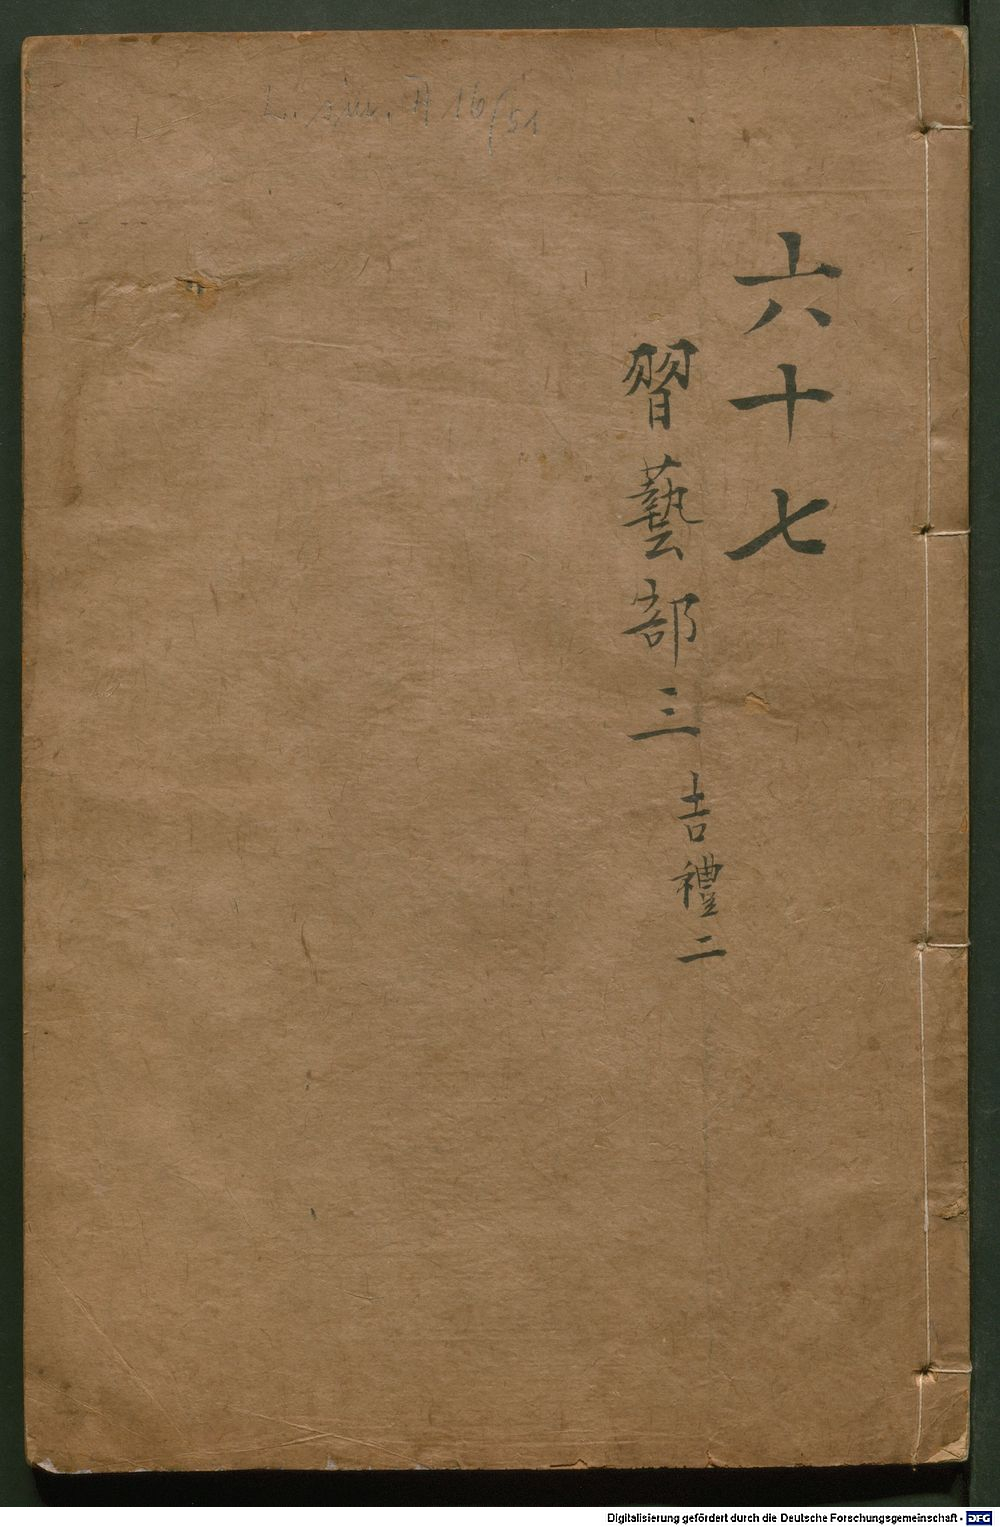 L. sin. A 16/51
六十七
習藝部三
吉禮二
Digitalisierung gefördert durch die Deutsche Forschungsgemeinschaft - DFG